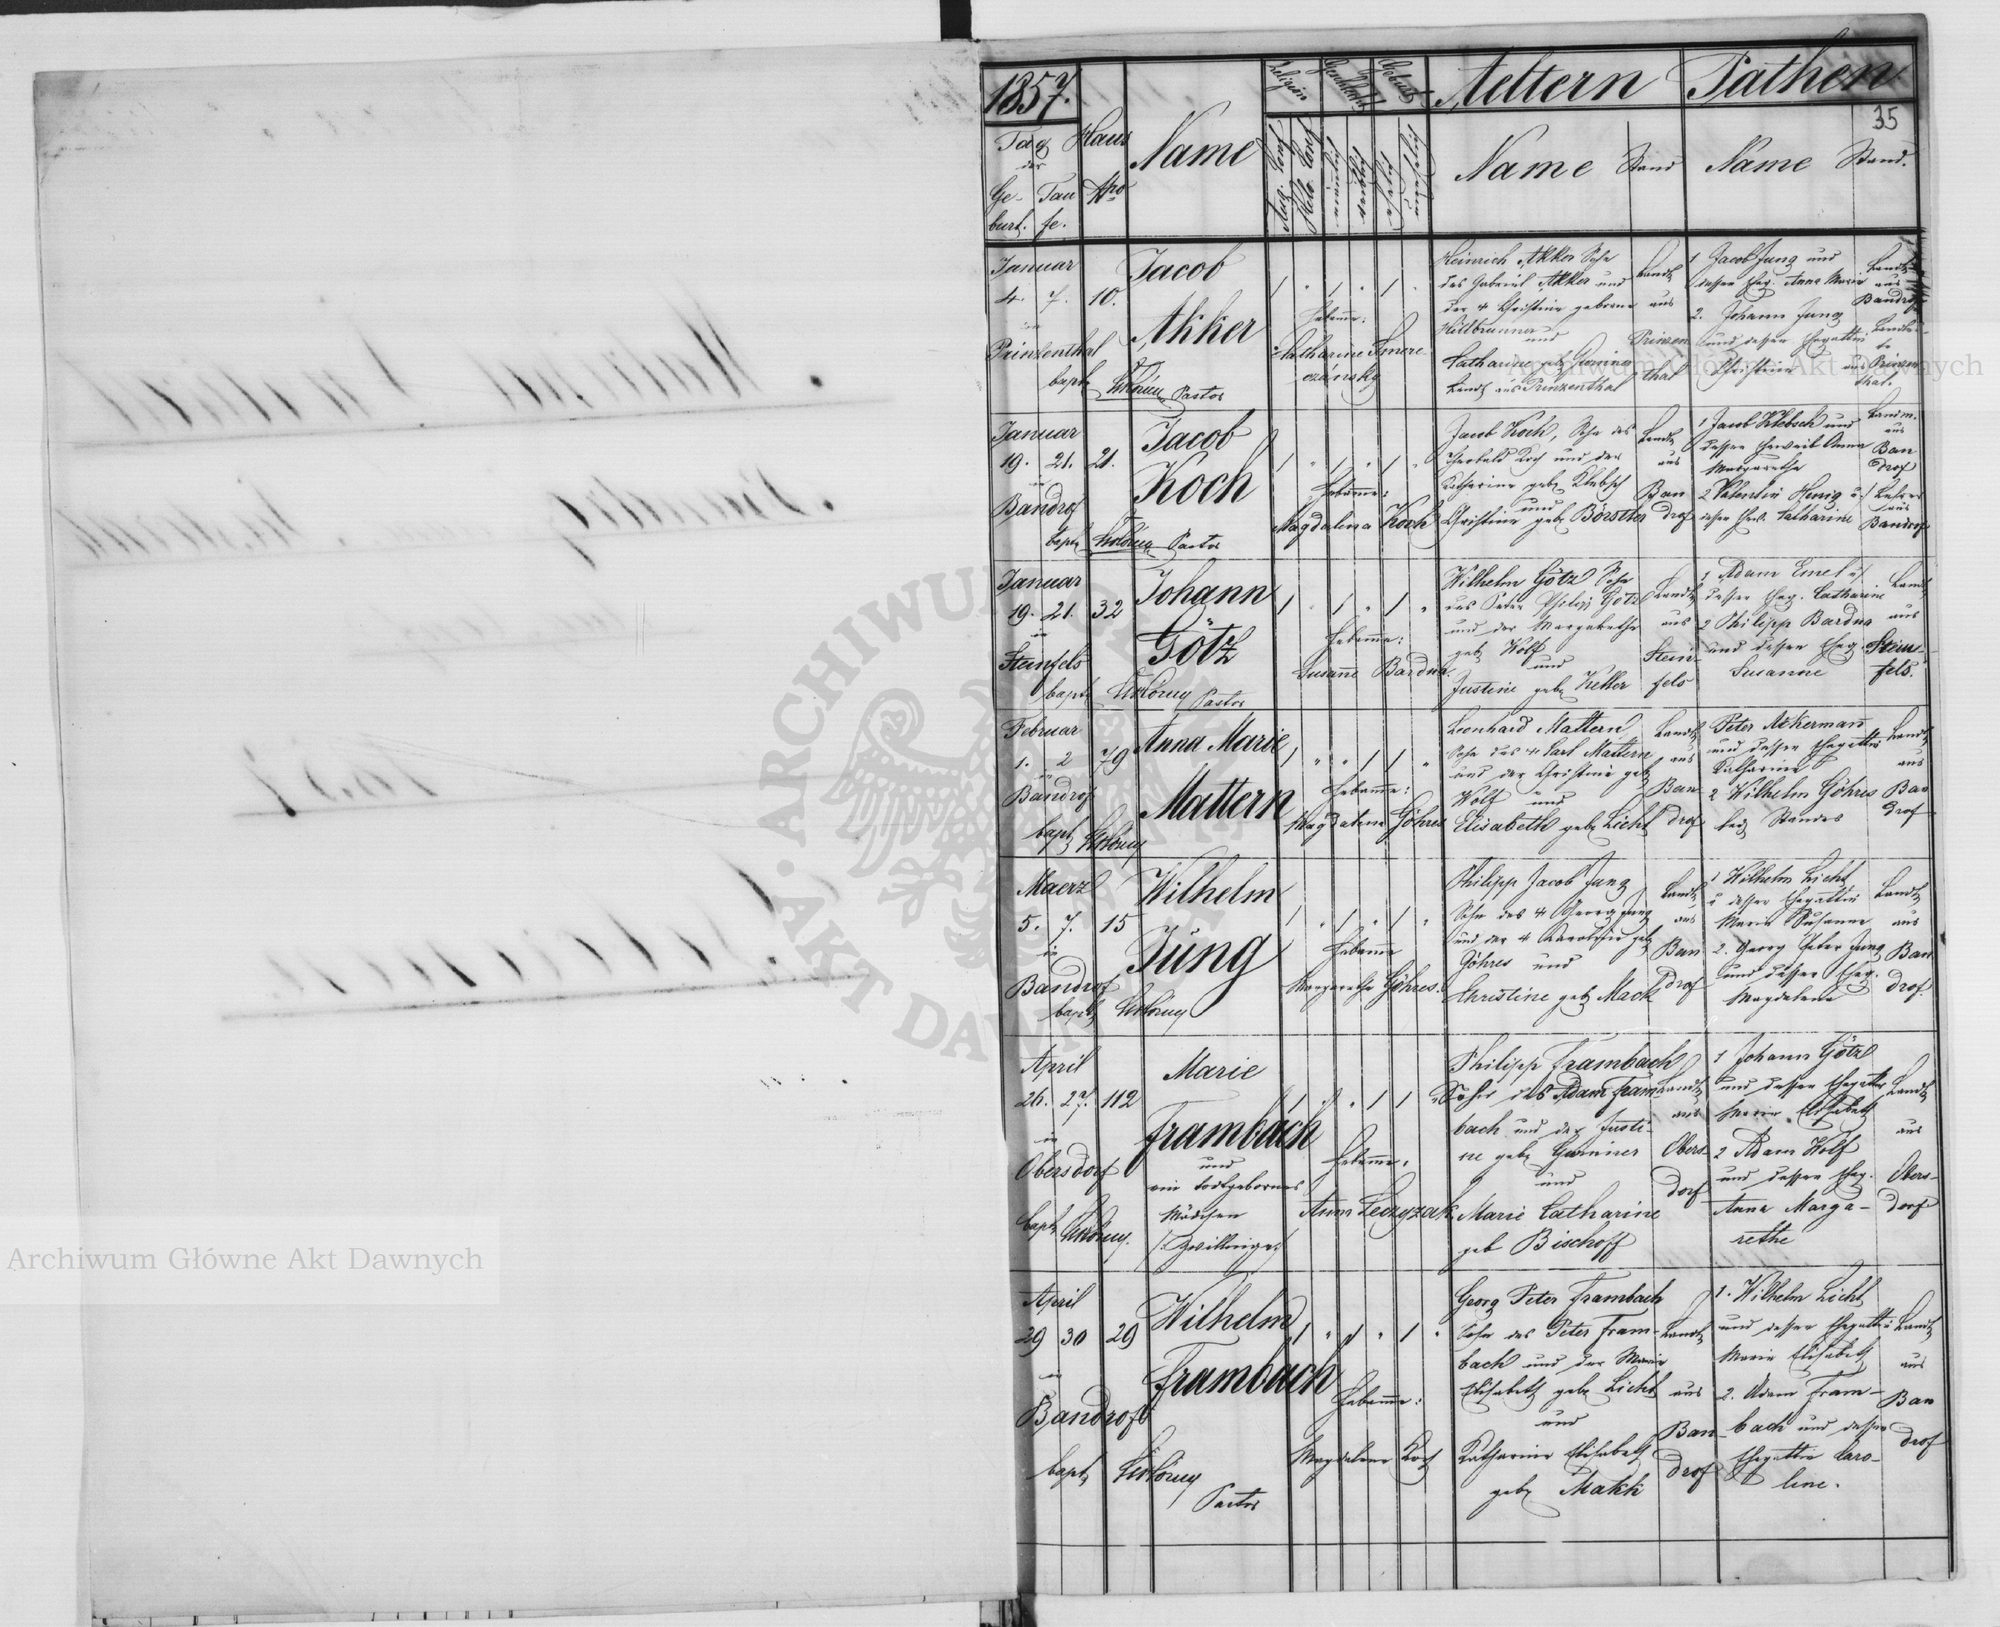 1857.
Religion
Geschlecht
Geburt
Aeltern
Pathen
35
Tag
der
Ge-
burt.
Tau
fe.
Haus
Nro
Name
Aug. Conf
Helv. Conf
männlich
weiblich
ehelich
unehelich
Name
Stand
Name
Stand.
Januar
4. 7. 10.
in
Prinzenthal
bapt
Pastor
Jacob
Akker
Hebamme:
Catharine
Heinrich Akker Sohn
des Gabriel Akker und
der + Christine geborene
Heilbrunner und
Catharine geb
Landt aus Prinzenthal
Landt
aus
Prinzen
thal
1 Jacob Jung und
dessen Eheg. Anna Marie
2. Johann Jung
und dessen Ehegattin
Christine
Landt
aus
Bandrof
aus Prinzen
thal.
Januar
19. 21. 21.
in
Bandrof
bapt
Pastor
Jacob
Koch
Hebamme:
Magdalena Koch
Jacob Koch, Sohn des
Theobald Koch und der
Catharine geb Klebsch
und
Christine geb Börstler
Landt
aus
Ban
drof
1 Jacob Klebsch und
dessen Eheweib Anna
Margarethe
2 Valentin Henig u
dessen Ehew. Catharine
Landm.
aus
Ban
drof
Lehrer
aus
Bandrof
Januar
19. 21. 32
in
Steinfels
bapt
Pastor
Johann
Götz
Hebamme:
Susanne Bardua.
Wilhelm Götz Sohn
des Peter Philipp Götz
und der Margarethe
geb Wolf
und
Justine geb Keller
Landt
aus
Stein-
fels
1 Adam Emel u
dessen Eheg. Catharine
2 Philipp Bardua
und dessen Eheg
Susanne
Landt
aus
Stein-
fels.
Februar
1. 2 79
in
Bandrof
bapt
Anna Marie
Mattern
Hebamme:
Magdalena Göhres
Leonhard Mattern
Sohn des + Carl Mattern
und der Christine geb
Wolf und
Elisabeth geb Licht
Landt
aus
Ban
drof
Peter Akerman
und dessen Ehegattin
Katharine
2 Wilhelm Göhres
led Standes
Landt
aus
Ban
drof
Maerz
5. 7. 15
in
Bandrof
bapt
Wilhelm
Jung
Hebamme
Margarethe Göhres.
Philipp Jacob Jung
Sohn des + Georg Jung
und der + Karoline geb
Göhres und
Christine geb Mack
Landt
aus
Ban
drof
1 Wilhelm Licht
u dessen Ehegattin
Marie Susanne
2. Georg Peter Jung
und dessen Eheg.
Magdalena
Landt
aus
Ban
drof.
April
26. 27. 112
in
Obersdorf
bapt
Marie
Frambach
und
ein todtgebornes
Mädchen
/: Zwillinge :/
Hebamme:
Anna
Philipp Frambach
Sohn des Adam Fram
bach und der Justi-
ne geb
und
Marie Catharine
geb Bischoff
Landt
aus
Obers-
dorf
1 Johann Götz
und dessen Ehegattin
Marie Elisabeth
2 Adam Wolf
und dessen Eheg.
Anna Marga-
rethe
Landt
aus
Obers-
dorf
April
29 30 29
in
Bandrof
bapt
Pastor
Wilhelm
Frambach
Hebamme:
Magdalena Koch
Georg Peter Frambach
Sohn des Peter Fram-
bach und der Marie
Elisabeth geb Licht
und
Katharine Elisabeth
geb Makk
Landt
aus
Ban
drof
1. Wilhelm Licht
und dessen Ehegattin
Marie Elisabeth
2. Adam Fram-
bach und dessen
Ehegattin Caro-
line.
Landt
aus
Ban
drof
Archiwum Główne Akt Dawnych
Archiwum Główne Akt Dawnych